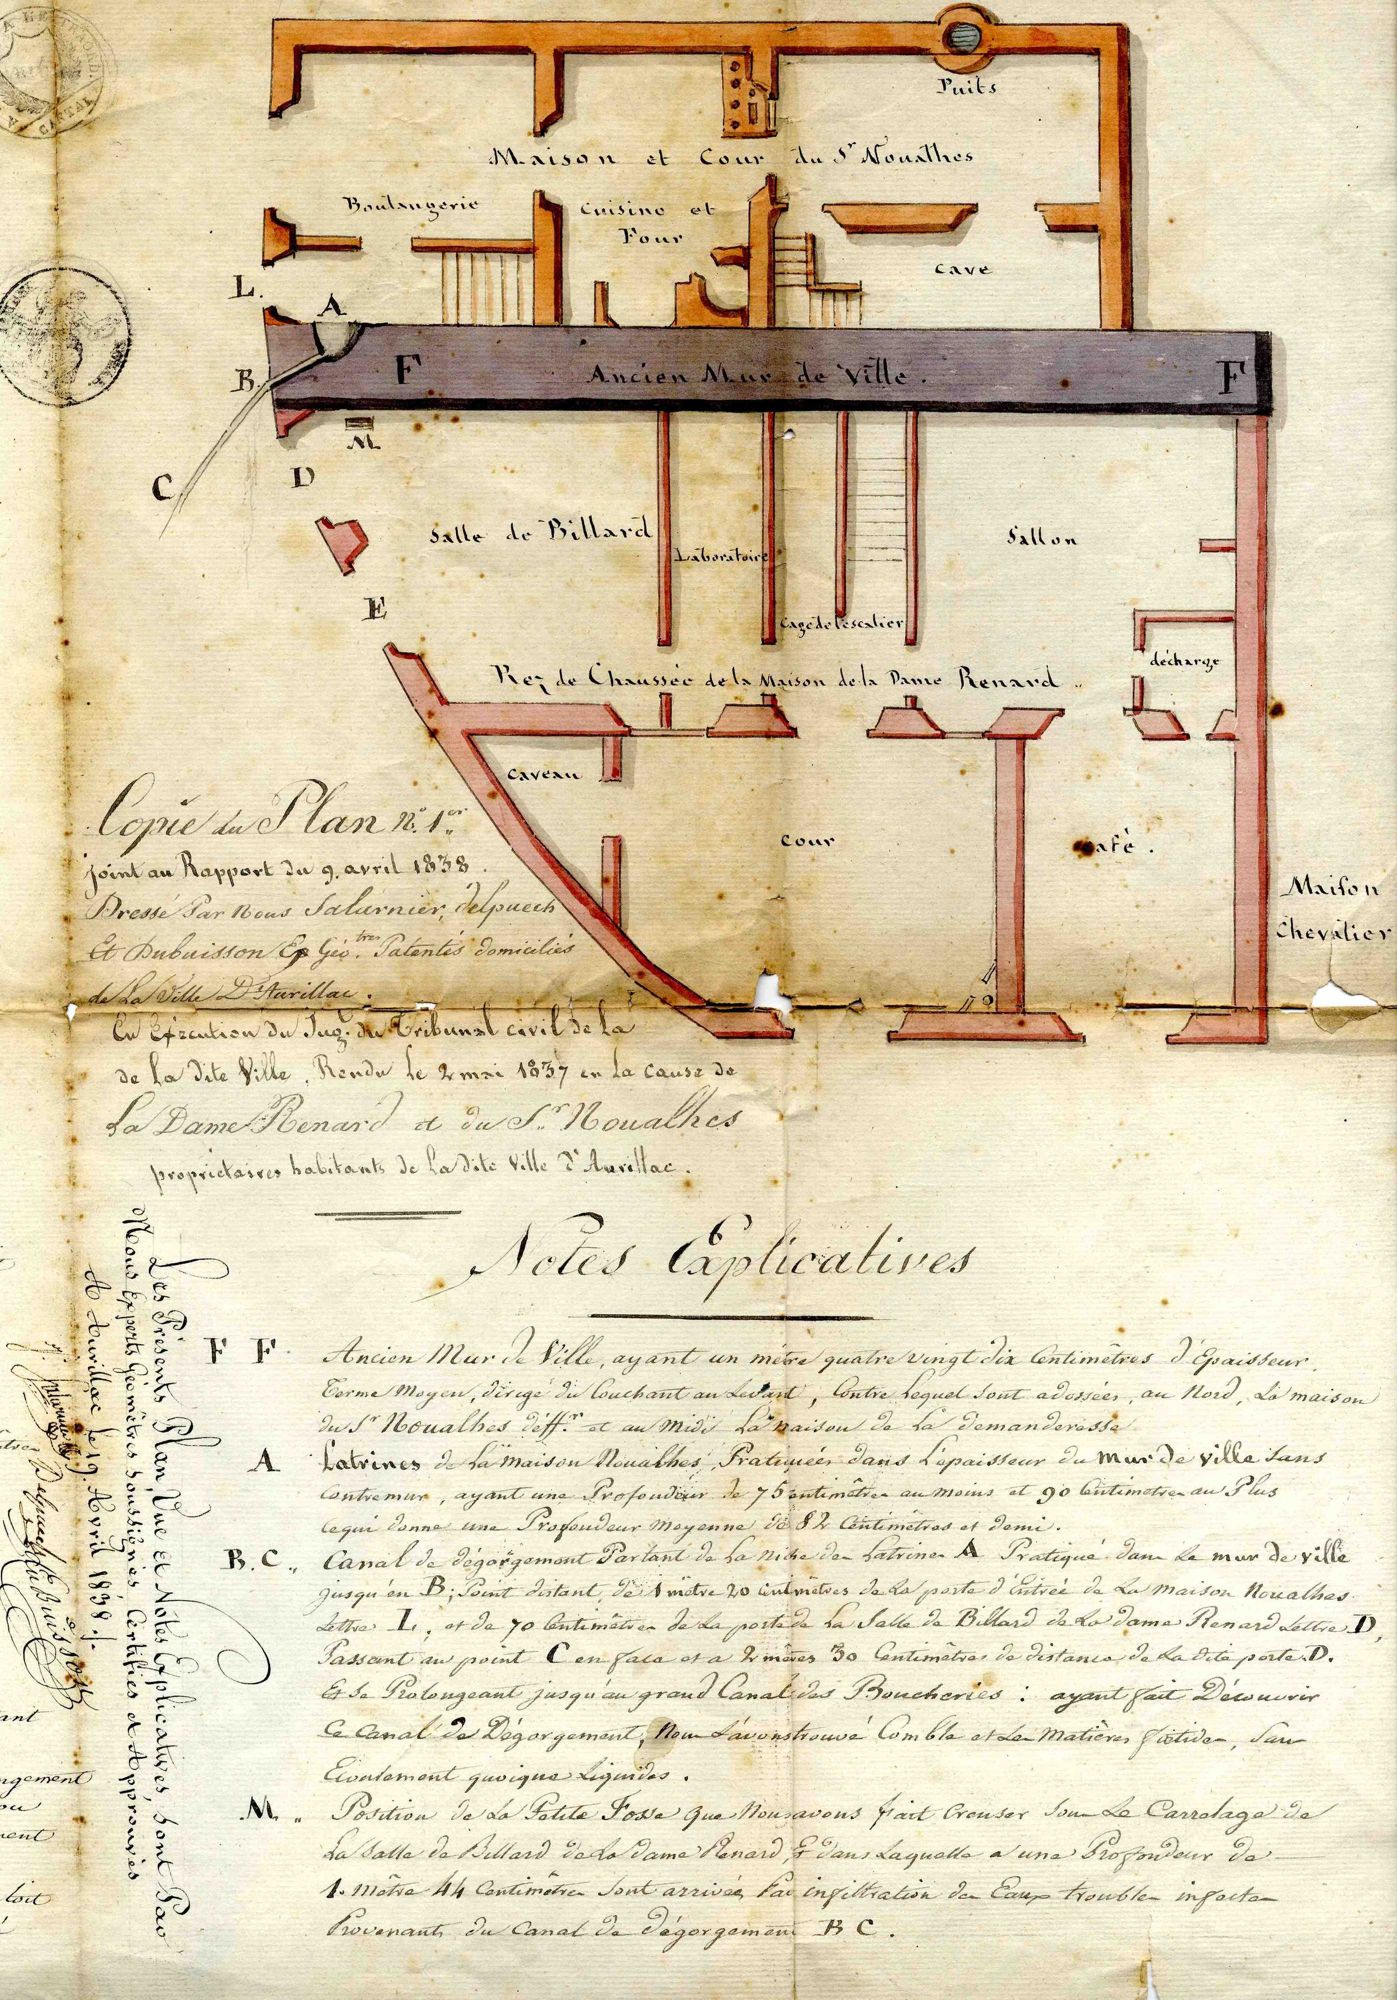 Puits
Maison et Cour du Sr Noualhes
Boulangerie
Cuisine et
Four
Cave
L.
A
B.
F
Ancien Mur de Ville.
F
M
C
D
Salle de Billard
Laboratoire
Sallon
E
Cage de l'escalier
décharge
Rez de Chaussée de la Maison de la Dame Renard „
Caveau
Cour
Café.
Maison
Chevalier
Copie du Plan No. 1er
joint au Rapport du 9. avril 1838.
Dressé Par Nous Salarnier, Delpuech
Et Dubuisson Ex Géotres Patentés domiciliés
de La Ville D'Aurillac.
En Exécution du Jugt du Tribunal civil de La
de La dite Ville, Rendu Le 2 mai 1837 en La cause de
La Dame Renard et du Sr Noualhes
propriétaires habitants de La dite Ville d'Aurillac.
Notes Explicatives
F F Ancien Mur de Ville, ayant un mètre quatre vingt dix Centimêtres d'Epaisseur,
Terme Moyen, dirigé du Couchant au Levant, Contre Lequel Sont adossées, au Nord, La maison
du Sr Noualhes déffr et au Midi La maison de La demanderesse
A Latrines de La maison Noualhes, Pratiquées dans L'épaisseur du mur de ville Sans
Contremur, ayant une Profondeur de 75 Centimêtres au moins et 90 Centimetres au Plus
Ce qui donne une Profondeur Moyenne de 82 Centimêtres et demi.
B. C „ Canal de dégorgement Partant de La Niche des Latrines A Pratiqué dans Le mur de ville
jusqu'en B; Point distant, de 1 mètre 20 Centimètres de La porte d'Entrée de La maison Noualhes
Lettre L, et de 70 Centimètres de La porte de La Salle de Billard de La dame Renard Lettre D,
Passant au point C en face et a 2 mètres 30 Centimêtres de distance de La dite porte D.
Et Se Prolongeant jusqu'au grand Canal des Boucheries: ayant fait Découvrir
Ce Canal de Dégorgement, Nous L'avons trouvé Comble et Les Matières fœtides, Sans
Ecoulement quoique Liquides.
M „ Position de La Petite Fosse que Nous avons fait Creuser Sous Le Carrelage de
La Salle de Billard de La dame Renard, Et dans Laquelle a une Profondeur de
1. Mètre 44 Centimêtres Sont arrivées Par infiltration des Eaux troubles infectes
Provenants du Canal de dégorgement B C.
Les Présents Plan, Vue et Notes Explicatives, Sont Par
Nous Experts Géomètres Soussignés Certifiés et Approuvés
A Aurillac Le 19 Avril 1838 %.
Delpuech
Dubuisson
ngement